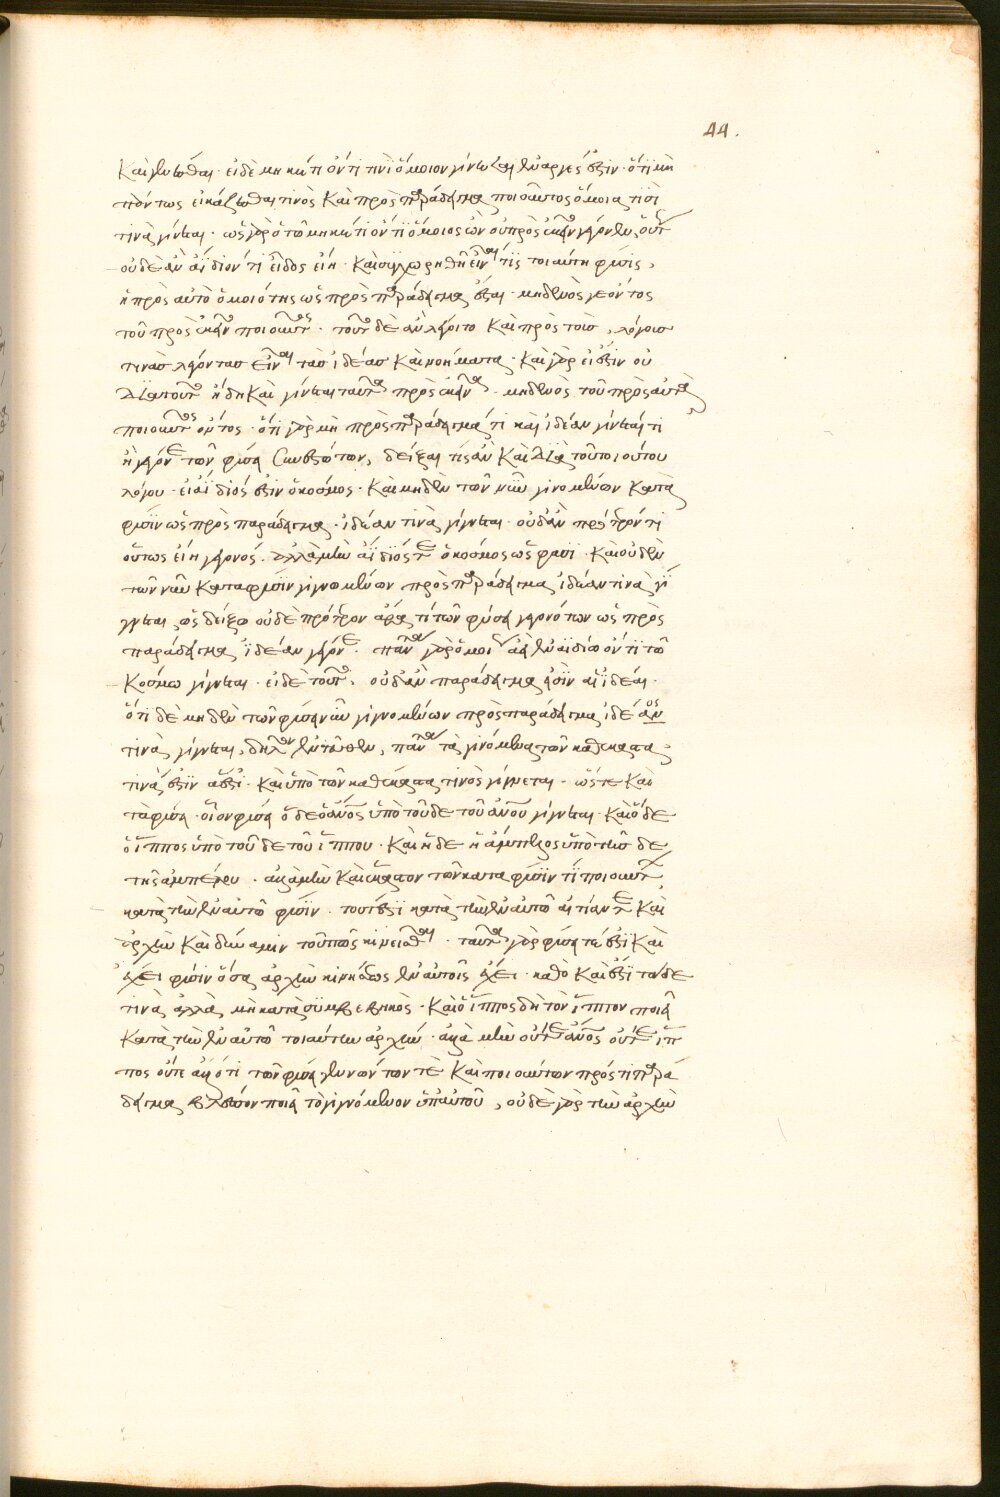 44.
καὶ γίνεσθαι. εἰ δὲ μὴ κἄν τι ὄντι τινὶ ὅμοιον γίνεσθαι ἐναργές ἐστιν. ὅτι μὴ
πάντως εἰκάζεσθαι τινὸς καὶ πρὸς παράδειγμα ποιοῦντος ὅμοια τισὶ
τινὰ γίνεται. ὡς γὰρ ὅτω μὴ κἄν τι ὄντι ὅμοιος ὢν οὐ πρὸς ἐκεῖνον γέγονεν, οὕτως
οὐδὲ ἂν ἀΐδιόν τι εἶδος εἴη. καὶ συγχωρηθῆ εἶναι τίς τοιαύτη φύσις,
ἡ πρὸς αὐτὸ ὁμοιότης ὡς πρὸς παράδειγμα ἔσται. μηδενὸς γε ὄντος
τοῦ πρὸς ἐκεῖνον ποιοῦντος. τοῦτο δὲ ἂν λέγοιτο καὶ πρὸς τοὺς, λόγους
τινὰς λέγοντας εἶναι τὰς ἰδέας καὶ νοήματα. καὶ γάρ εἰσιν οὐ
διὰ τοῦτο ἤδη καὶ γίνεται ταῦτα πρὸς ἐκεῖνα. μηδενὸς τοῦ πρὸς αὐτὰ
ποιοῦντος ὄντος. ὅτι γὰρ μὴ πρὸς παράδειγμά τι καὶ ἰδέαν γίνεταί τι
ἢ γέγονε τῶν φύσει συνεστώτων, δείξαι τις ἂν καὶ διὰ τοῦ τοιούτου
λόγου. εἰ ἀΐδιός ἐστιν ὁ κόσμος. καὶ μηδὲν τῶν νῦν γινομένων κατὰ
φύσιν ὡς πρὸς παράδειγμα. ἰδέαν τινὰ γίγνεται. οὐδ' ἂν πρότερόν τι
οὕτως εἴη γεγονός. ἀλλὰ μὴν ἀΐδιός τε ὁ κόσμος ὥς φασι. καὶ οὐδὲν
τῶν νῦν κατὰ φύσιν γιγνομένων πρὸς παράδειγμα ἰδέαν τινὰ γί
γνεται, ὡς δείξω οὐδὲ πρότερον ἄρα τί τῶν φύσει γεγονότων ὡς πρὸς
παράδειγμα ἰδέαν γέγονε. πάντα γὰρ ὅμοια ἀεὶ ἐν ἀϊδίω ὄντι τῶ
κόσμω γίγνεται. εἰ δὲ τοῦτο. οὐδ' ἂν παράδειγμα εἶσιν αἱ ἰδέαι.
ὅτι δὲ μηδὲν τῶν φύσει νῦν γιγνομένων πρὸς παράδειγμα ἰδέαν
τινὰ γίγνεται, δῆλον ἐντεῦθεν, πάντα τὰ γινόμενα τῶν καθέκαστα
τινά ἐστιν ἀεί. καὶ ὑπὸ τῶν καθέκαστα τινὸς γίγνεται. ὥστε καὶ
τὰ φύσει. οἷον φύσει ὅδε ὁ ἄνθρωπος ὑπὸ τοῦδε τοῦ ἀνθρώπου γίγνεται. καὶ ὅδε
ὁ ἵππος ὑπὸ τοῦδε τοῦ ἵππου. καὶ ἥδε ἡ ἄμπελος ὑπὸ τῆσδε
τῆς ἀμπέλου. ἀλλὰ μὴν καὶ ἕκαστον τῶν κατὰ φύσιν τί ποιούντων
κατὰ τὴν ἐν αὐτῶ φύσιν. τουτέστι κατὰ τὴν ἐν αὐτῶ αἰτίαν τε καὶ
ἀρχὴν καὶ δύναμιν τοῦ πῶς κινεῖσθαι. ταῦτα γὰρ φύσει τέ ἐστι καὶ
ἔχει φύσιν ὅσα ἀρχὴν κινήσεως ἐν αὑτοῖς ἔχει. καθὸ καὶ ἐστὶ τάδε
τινὰ ἀλλὰ μὴ κατὰ συμβεβηκός. καὶ ὁ ἵππος δὴ τὸν ἵππον ποιεῖ
κατὰ τὴν ἐν αὑτῶ τοιαύτην ἀρχήν. ἀλλὰ μὴν οὔτε ἄνθρωπος οὔτε ἵπ
πος οὔτε ἄλλό τι τῶν φύσει γεννώντων τε καὶ ποιούντων πρός τι παρά
δειγμα βλέπον ποιεῖ τὸ γιγνόμενον ὑπ' αὐτοῦ, οὐδὲ γὰρ τὴν ἀρχὴν